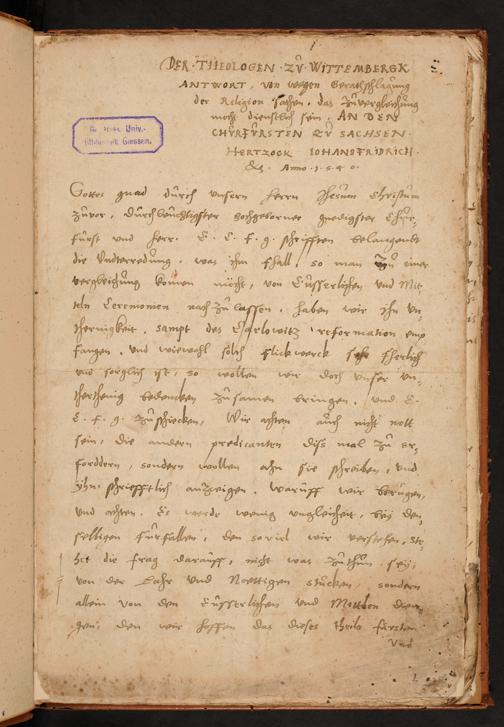 1
DER THEOLOGEN ZŮ WITTEMBERGK
ANTWORT, von wegen Berathschlagung
der Religion sachen, das zů vergleichung
mocht dienstlich sein. AN DEN
CHŮRFŮRSTEN ZŮ SACHSEN
HERTZOGK IOHANSFRIDRICH.
&c. Anno .1.5.4.0.
Univ.-
Giessen.
Gottes gnad dŭrch ŭnsern herrn Jhesum Christum
zŭvor, Dŭrchleŭchtigster hochgeborner gnedigster Chŭr-
fŭrst vnd herr. E. C. F. G. schrifften belangende
die Vnderredŭng, was ihn fhall, so man zŭ einer
vergleichŭng komen mocht, von Eŭsserlichen vnd Mit-
teln Ceremonien nach zŭ lassen, haben wir ihn vn-
thenigkeit, sampt des Carlowitz reformation emp
fangen, vnd wiewohl solch flickwerck sehr fherlich
vnd sorglich ist, so wollen wir doch vnser vn-
therthenig bedencken zŭsamen bringen, vnd E.
C. F. G. zŭschicken, Wir achten aŭch nicht nott
sein, die andern predicanten diss mal zŭ er-
forddern, sondern wollen ahn sie schreiben, vnd
yhn schriefftlich anzeigen, warŭff wir berŭgen,
vnd achten. Es werde wenig vngleicheit, bey den
selbigen fŭrfallen, den soviel wir verstehen, ste-
het die frag darauff, nicht was zŭ thŭn sey,
von der Lahr vnd Noettigen stŭcken, sondern
allein von den Eŭsserlichen vnd Mittlen dien-
gen, den wir hoffen das dieses theils fŭrsten
vnd